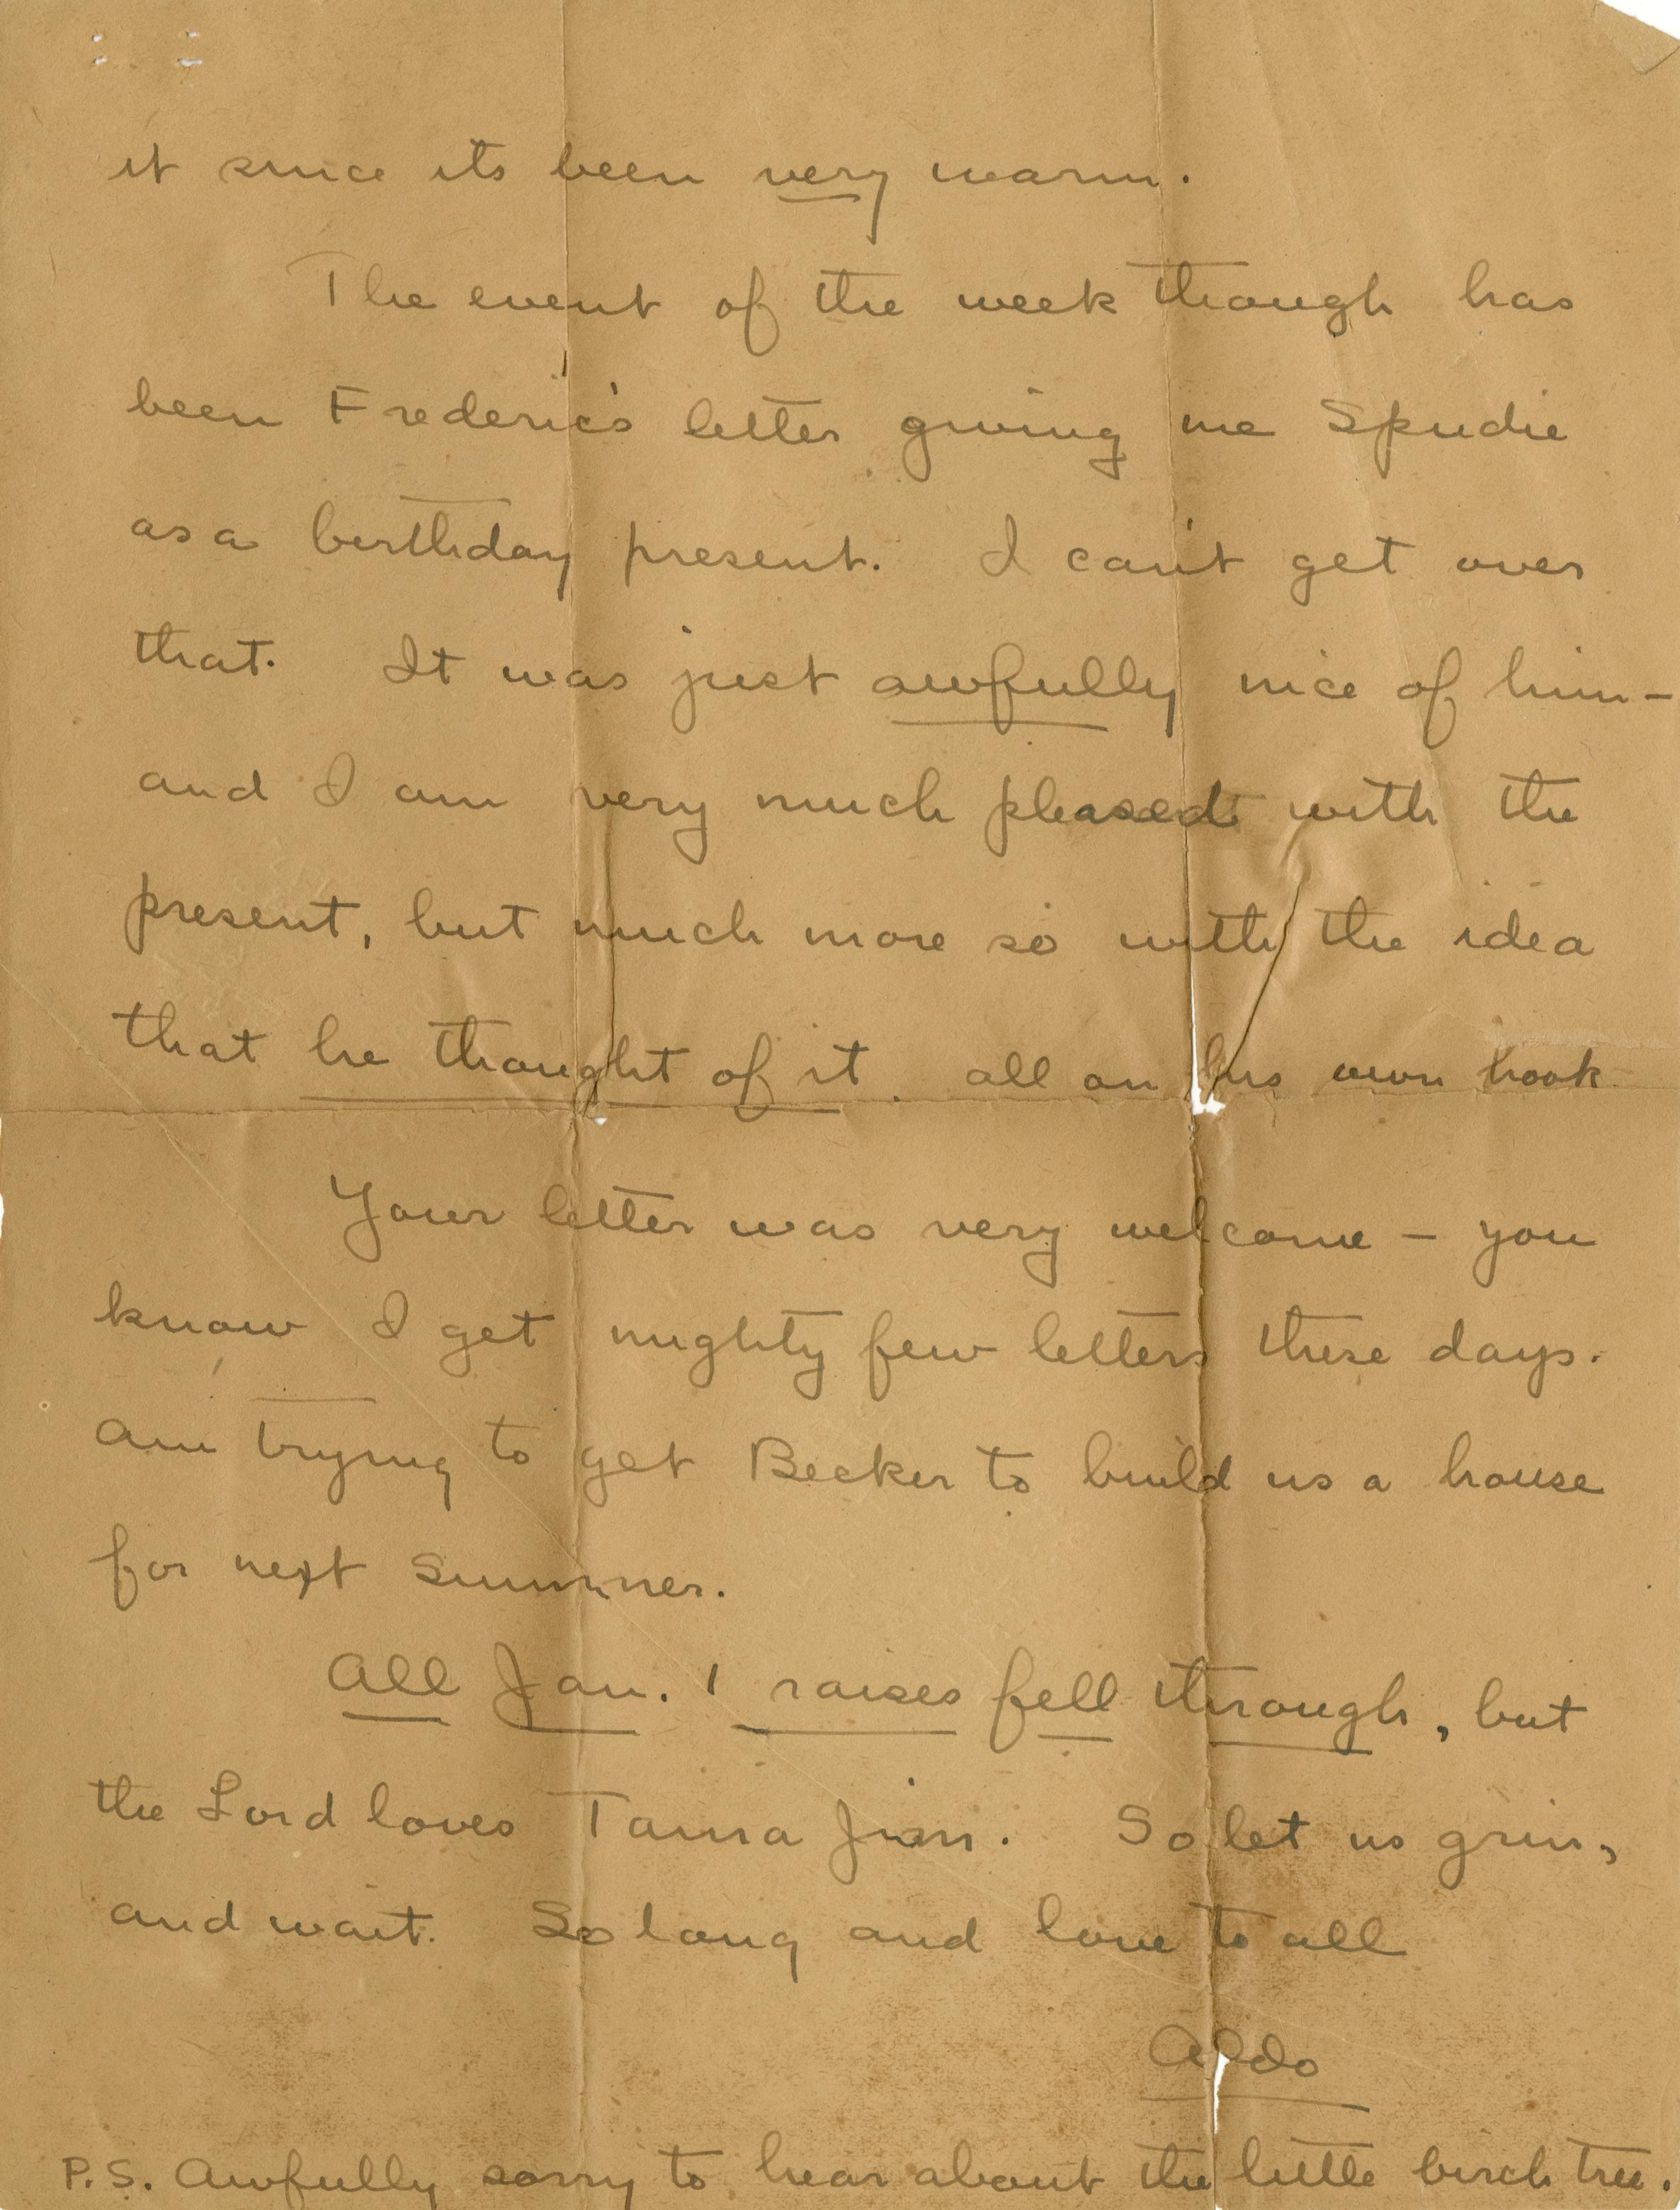 it since its been very warm.
The event of the week though has
been Frederic's letter giving me Spudie
as a birthday present. I can't get over
that. It was just awfully nice of him –
and I am very much pleased with the
present, but much more so with the idea
that he thought of it all on his own hook
Your letter was very welcome – you
know I get mighty few letters these days.
Am trying to get Becker to build us a house
for next summer.
All Jan. 1 raises fell through, but
the Lord loves Tama Jim. So let us grin,
and wait. So long and love to all
Aldo
P.S. Awfully sorry to hear about the little birch tree.